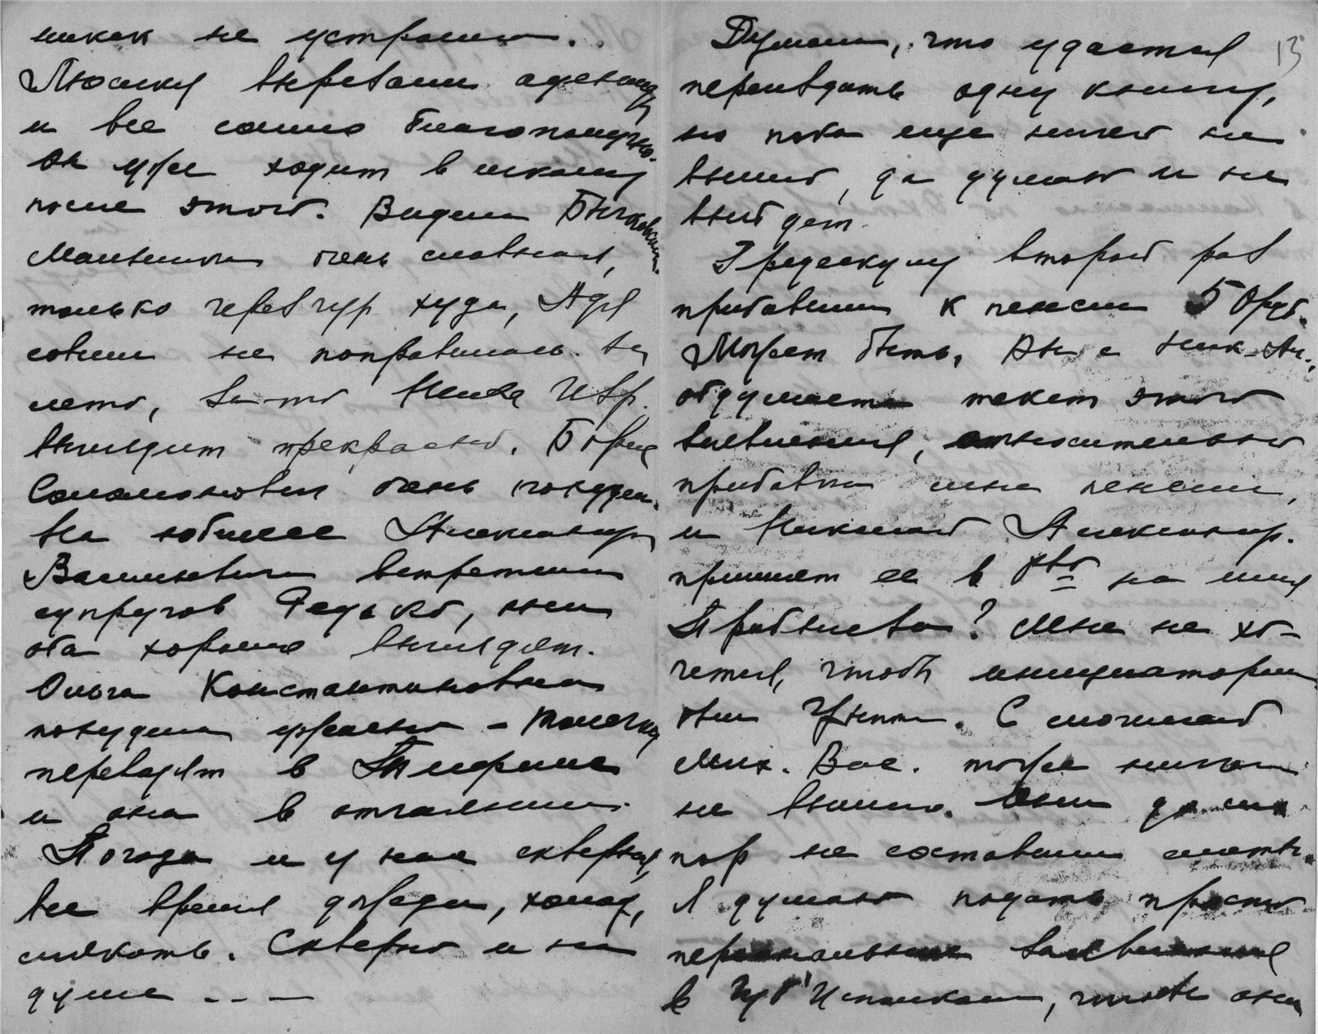 никак не устроим.
Люсику вырезали аденоиды
и все сошло благополучно.
Он уже ходит в школу
после этого. Видели Быховских.
Мальчики очень славные,
только чересчур худы, Адя
совсем не поправилась за
лето, зато
выглядит прекрасно. Борис
Соломонович очень похудел.
На юбилее Александра
Васильевича встретили
супругов Редько, они
оба хорошо выглядят.
Ольга Константиновна
похудела ужасно –
переводят в Тифлис
и она в отчаянии.
Погода и у нас скверная,
все время дожди, холод,
слякоть. Скверно и на
душе - - —
13
Думали, что удастся
переиздать одну книгу,
но пока еще ничего не
вышло, да думаю и не
выйдет.
Гредескулу второй раз
прибавили к пенсии 50 руб.
Может быть, Вы с Ник. Ал.
обдумаете текст этого
заявления, относительно
прибавки мне пенсии,
и Николай Александр.
пришлет ее в о-во на имя
Мне не хо-
чется, чтобы инициаторами
были С могилой
Мих. Вас. тоже ничего
не вышло. Они до сих
пор не составили сметы.
Я думаю подать просто
персональное заявление
в Губ Исполком, чтобы они